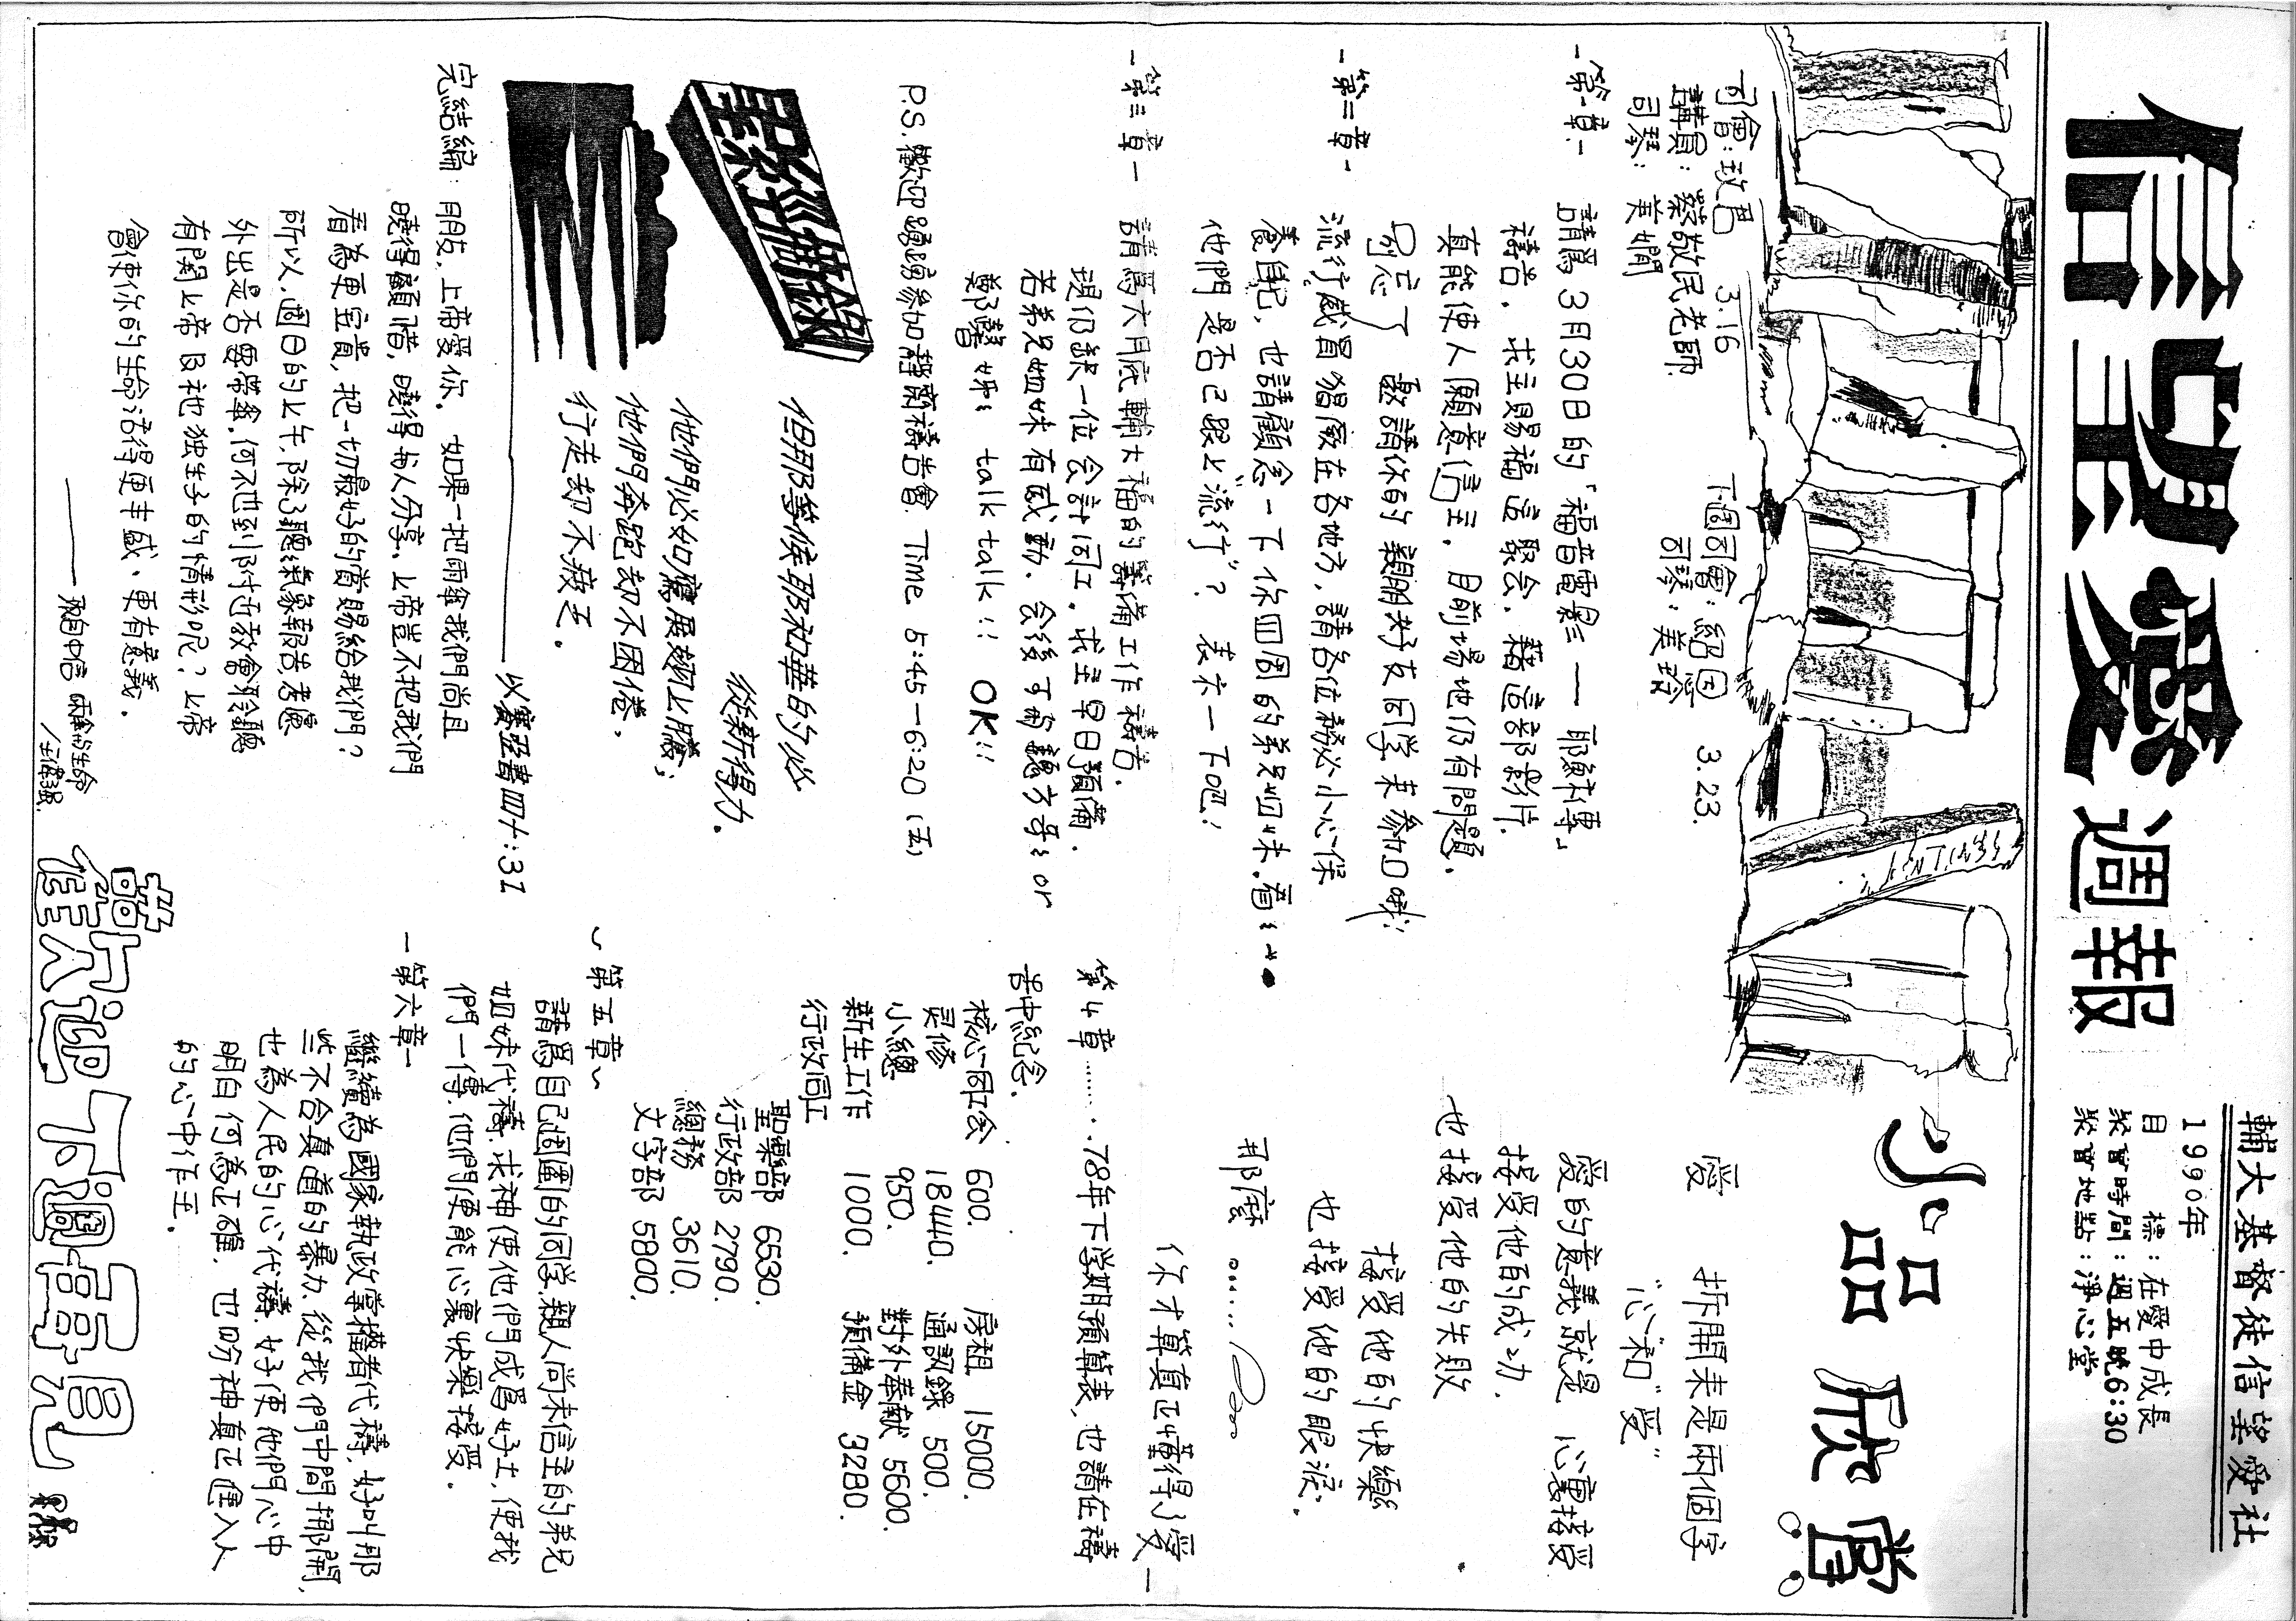 信望愛週報
輔大基督徒信望愛社
1990年
目標：在愛中成長
聚會時間：週五晚6:30
聚會地點：淨心堂
司會：玫君 3.16
講員：蔡敬民老師
司琴：美嫺
下週司會：紹因 3.23.
司琴：美瑢
-第一章-
請為3月30日的「福音電影」—耶穌傳。
禱告，求主賜福這聚会，藉這部影片，
真能使人願意信主，目前場地仍有問題。
別忘了 邀請你的親朋好友同学来參加哦！
-第二章-
流行感冒猖獗在各地方，請各位務必小心保
養自己，也請顧念一下你四周的弟兄姐妹，看看
他們是否已跟上"流行"？ 表示一下吧！
-第三章-
請為六月底輔大福音的籌備工作禱告，
現仍缺一位会計同工，求主早日預備。
若弟兄姐妹有感動，会後可商聽方哥哥or
鄭馨姊姊 talk talk!! OK!!
P.S.歡迎踴躍參加靜齋禱告會. Time 5:45-6:20（五）
聖經金榜
但那等候耶和華的必
從新得力。
他們必如鷹展翅上騰；
他們奔跑却不困倦，
行走却不疲乏。
以賽亞書四十：31
完結編：朋友，上帝愛你。如果一把雨傘我們尚且
曉得顧惜，曉得与人分享，上帝豈不把我們
看為更宝貴，把一切最好的賞賜給我們？
所以，週日的上午，除了聽氣象報告，考慮
外出是否需帶傘，何不也到附近教會聆聽
有関上帝及祂独生子的情形呢？上帝
會使你的生命活得更丰盛，更有意義。
——摘自中信 雨傘與生命
小品欣賞
愛 拆開来是兩個字
"心"和"受"
愛的意義就是 心裏接受
接受他的成功，
也接受他的失敗
接受他的快樂
也接受他的眼淚，
那麼……
你才算真正懂得了愛—
第4章……78年下学期預算表，也請在禱
告中紀念。
核心同工会 600. 房租 15000.
灵修 18440. 通訊錄 500.
小總 950. 對外奉献 5600.
新生工作 1000. 預備金 3280.
行政同工
聖樂部 6530.
行政部 2790.
總務 3610.
文字部 5800.
~第五章~
請為自己週圍的同学，親人尚未信主的弟兄
姐妹代禱，求神使他們成為好土，使我
們一傳，他們便能心裏快樂接受。
-第六章-
繼續為國家執政掌權者代禱，好叫那
些不合真道的暴力，從我們中間挪開，
也為人民的心代禱，好使他們心中
明白何為正確，也盼神真正進入人
的心中作主。
謝謝歡迎下週再見